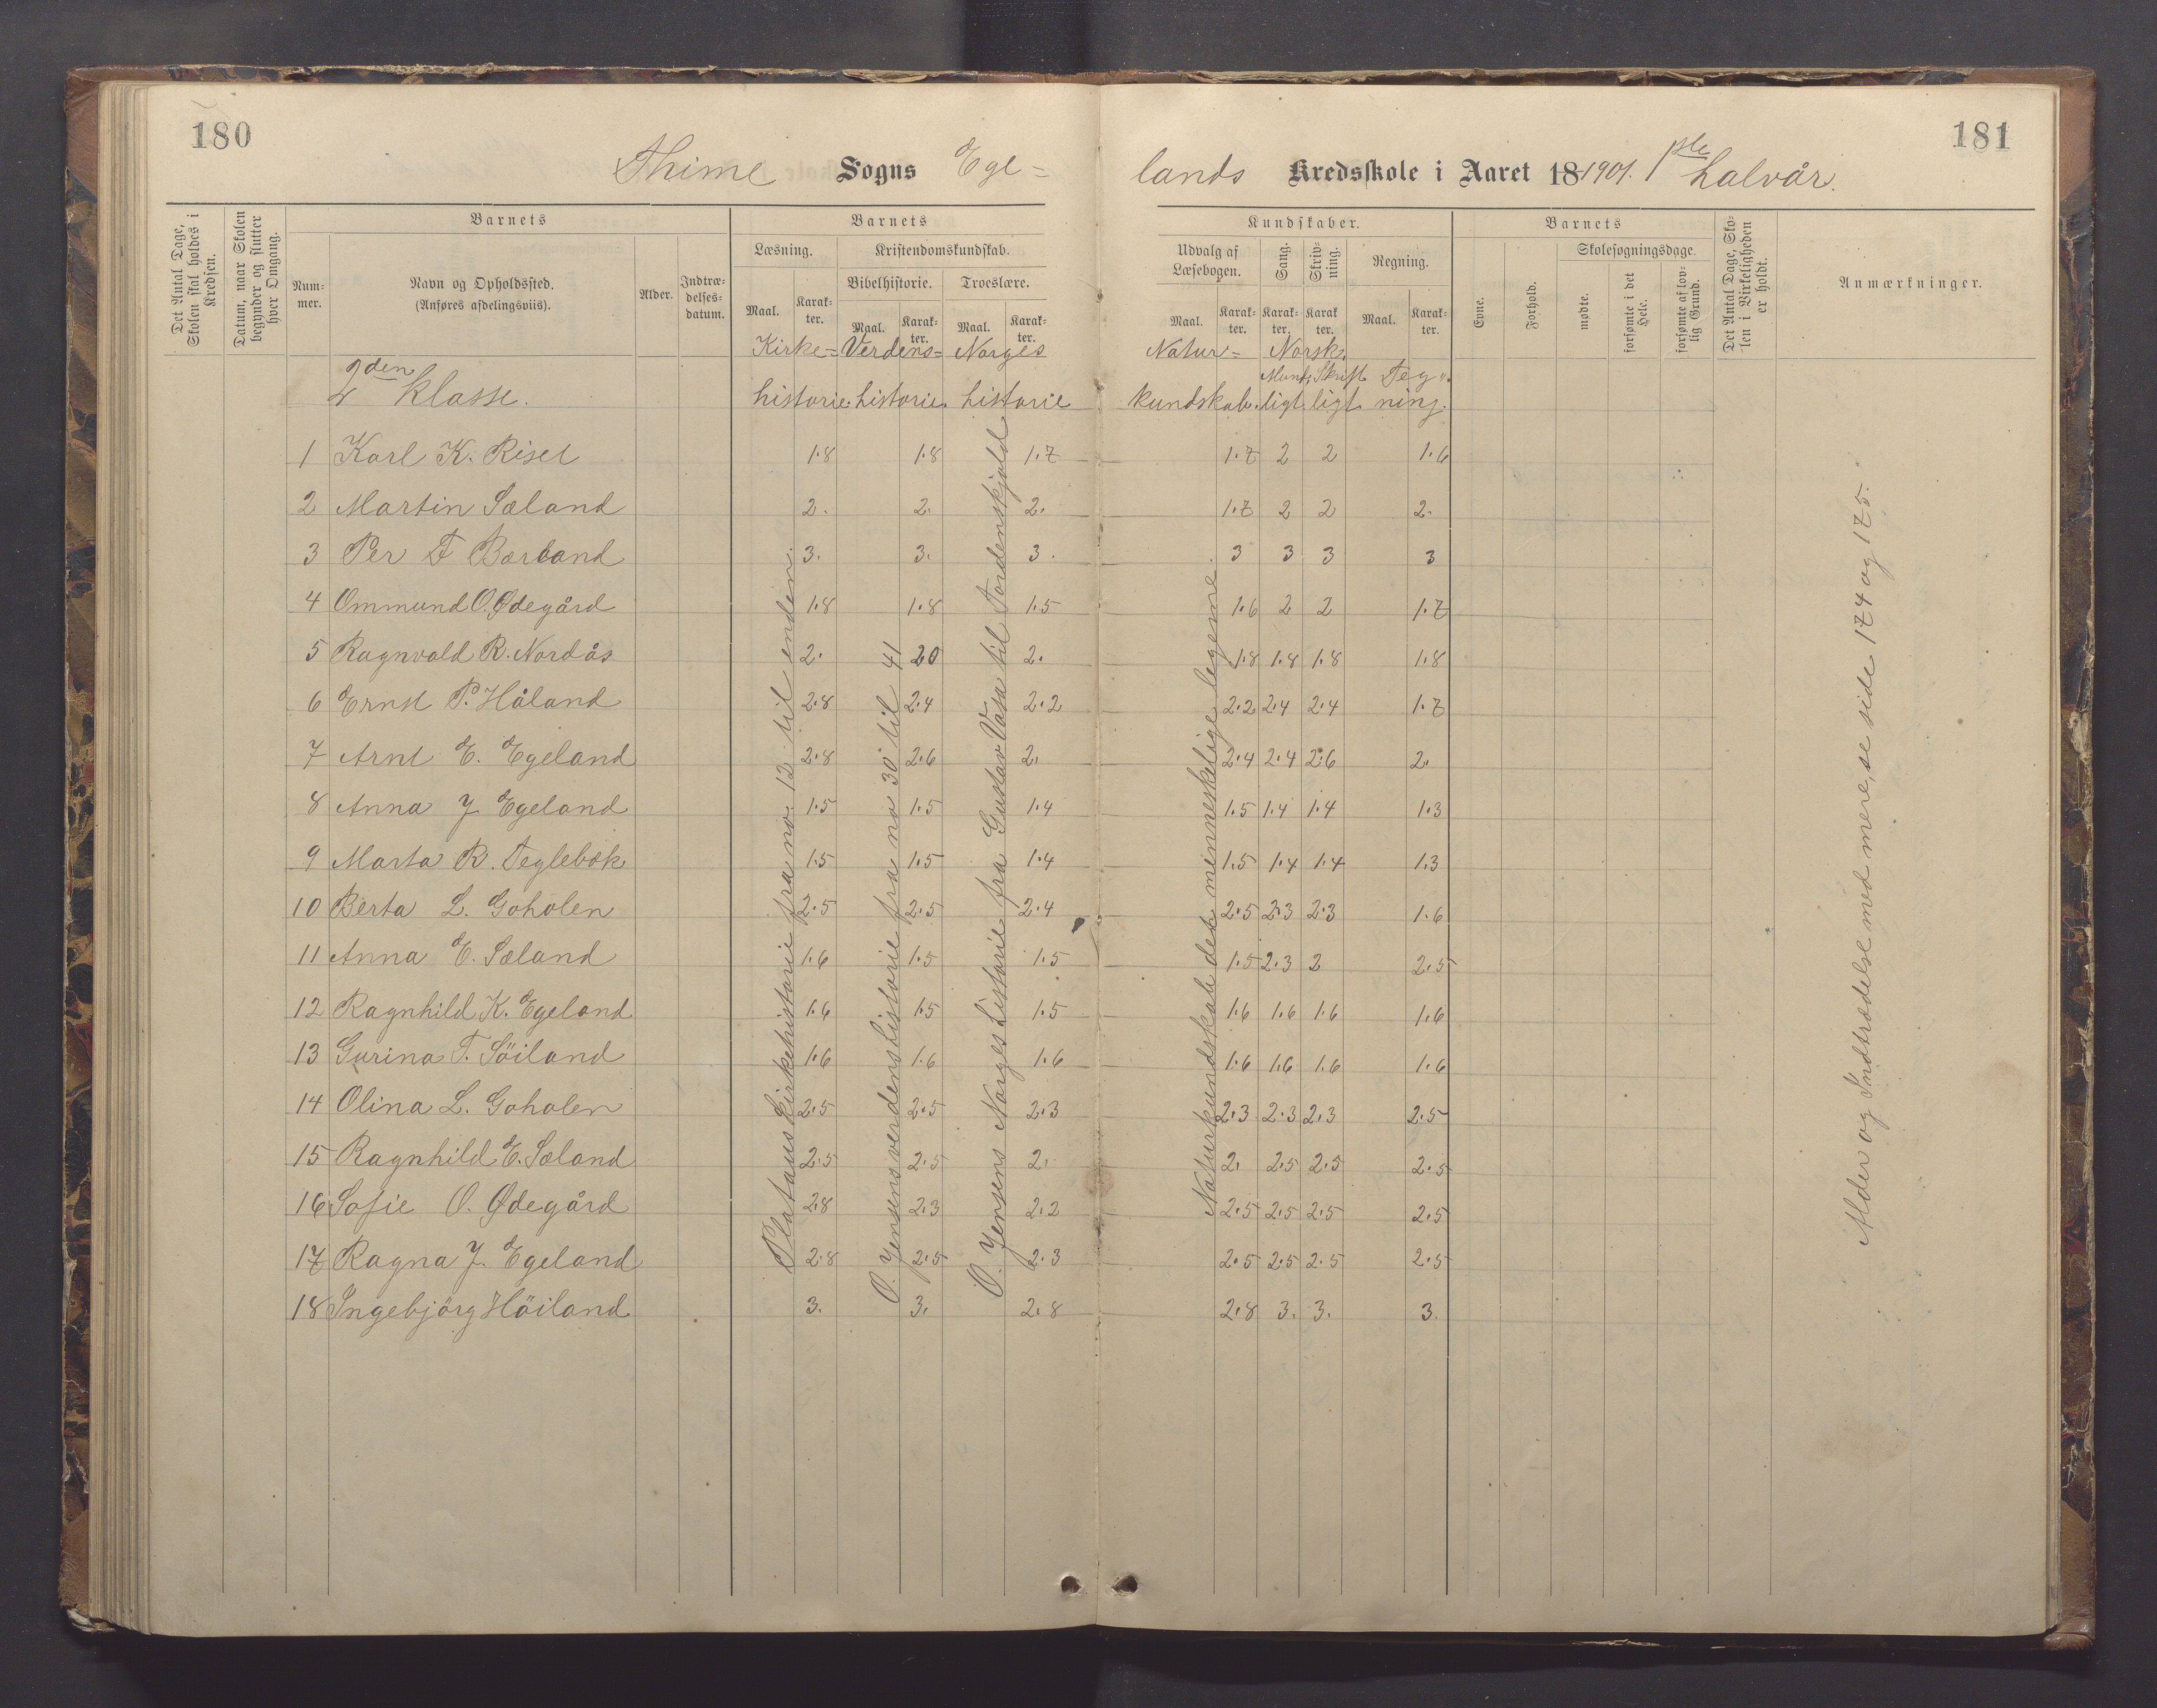 180
181
Thime Sogns Ege=
lands Kredsskole i Aaret 18 1901. 1ste halvår.
Det Antal Dage, Skolen skal holdes i Kredsen.
Datum, naar Skolen begynder og slutter hver Omgang.
Barnets
Num-mer.
Navn og Opholdssted.
(Anføres afdelingsviis).
Alder.
Indtræ-delses-datum.
Barnets
Læsning.
Kristendomskundskab.
Bibelhistorie.
Troeslære.
Maal.
Karak-ter.
Maal.
Karak-ter.
Maal.
Karak-ter.
Kundskaber.
Udvalg af Læsebogen.
Sang.
Skriv-ning.
Regning.
Maal.
Karak-ter.
Karak-ter.
Karak-ter.
Maal.
Karak-ter.
Barnets
Evne.
Forhold.
Skolesøgningsdage.
mødte.
forsømte i det Hele.
forsømte af lov-lig Grund.
Det Antal Dage, Sko-len i Virkeligheden er holdt.
Anmærkninger.
Kirke= Verdens= Norges Natur= Norsk.
Mundt Skrift Teg=
2den klasse. historie. historie. historie kundskab. ligt. ligt ning.
1 Karl K. Riset 1.8 1.8 1.7 1.7 2 2 1.6
2 Martin Sæland 2. 2. 2. 1.7 2 2 2.
3 Per F Borland 3. 3. 3. 3 3 3 3
4 Ommund O. Ødegård 1.8 1.8 1.5 1.6 2 2 1.7
5 Ragnvald R. Nordås 2. 20 2. 1.8 1.8 1.8 1.8
6 Ernst P. Håland 2.8 2.4 2.2 2.2 2.4 2.4 1.7
7 Arnt E. Egeland 2.8 2.6 2. 2.4 2.4 2.6 2.
8 Anna J Egeland 1.5 1.5 1.4 1.5 1.4 1.4 1.3
9 Marta R. Teglebæk 1.5 1.5 1.4 1.5 1.4 1.4 1.3
10 Berta L. Goholen 2.5 2.5 2.4 2.5 2.3 2.3 1.6
11 Anna E. Sæland 1.6 1.5 1.5 1.5 2.3 2 2.5
12 Ragnhild K. Egeland 1.6 1.5 1.5 1.6 1.6 1.6 1.6
13 Gurina T. Söiland 1.6 1.6 1.6 1.6 1.6 1.6 1.6
14 Olina L. Goholen 2.5 2.5 2.3 2.3 2.3 2.3 2.5
15 Ragnhild E. Sæland 2.5 2.5 2. 2. 2.5 2.5 2.5
16 Sofie O. Ødegård 2.8 2.3 2.2 2.5 2.5 2.5 2.5
17 Ragna J. Egeland 2.8 2.5 2.3 2.5 2.5 2.5 2.5
18 Ingebjörg Höiland 3. 3. 2.8 2.8 3. 3. 3.
Platous kirkehistorie fra no 12 til enden.
O. Jensens verdenshistorie fra no 30 til 41
O. Jensens Norgeshistorie fra Gustav Vasa til Tordenskjold
Naturkundskab det menneskelige legeme.
Alder og Indtrædelse med mere, se side 174 og 175.